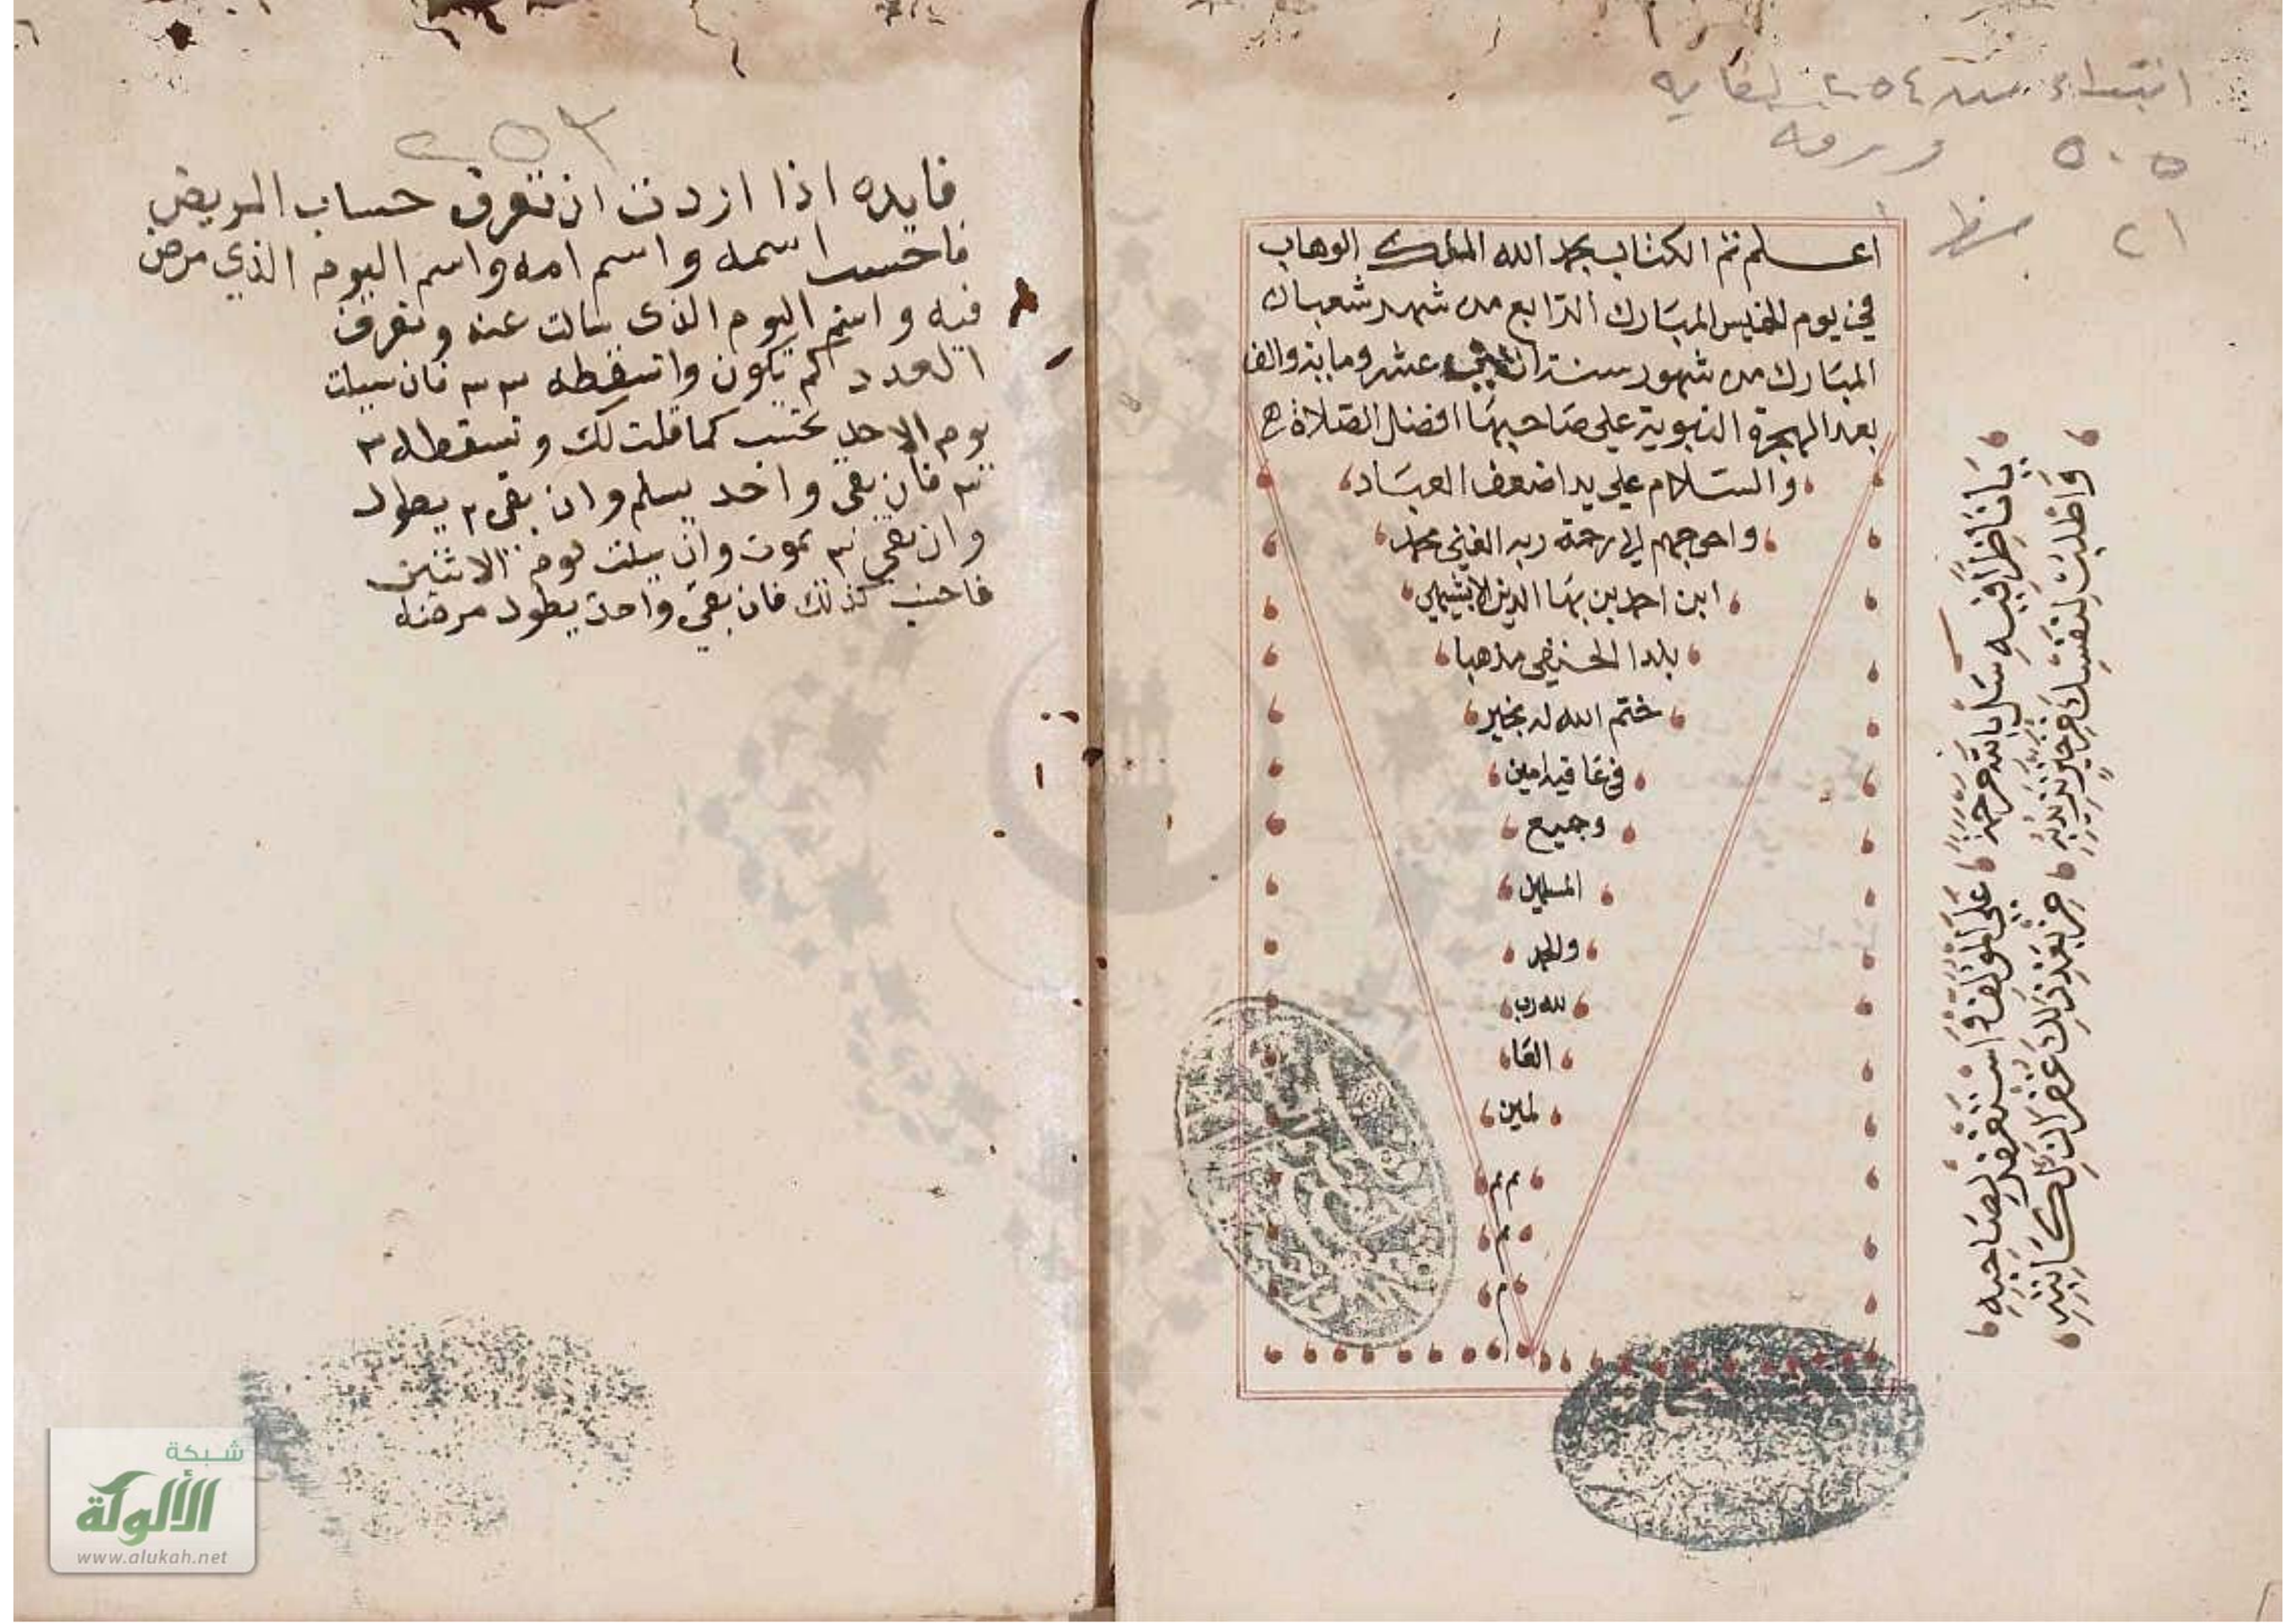 ابتداء من ٢٥٤ لغاية
٥٠٥ ورقه
٢١ سطر
اعلم تم الكتاب بحمد الله الملك الوهاب
في يوم الخميس المبارك الرابع من شهر شعبان
المبارك من شهور سنة عشر وماية والف
بعد الهجرة النبوية على صاحبها افضل الصلاة
والسلام على يد اضعف العباد
واحوجهم الى رحمة ربه الغني محمد
ابن احمد بن بها الدين الابشيهي
بلدا الحنفي مذهبا
ختم الله له بخير
في عافيه امين
وجميع
المسلمين
والحمد
لله رب
العا
لمين
م م
م
م
يَا نَاظِرًا فِيهِ سَلْ بِاللهِ مَرْحَمَةً
عَلَى المُؤَلِّفِ وَاسْتَغْفِرْ لِصَاحِبِهِ
وَاطْلُبْ لِنَفْسِكَ مِنْ خَيْرٍ تُرِيدُ بِهِ
مِنْ بَعْدِ ذَلِكَ غُفْرَانًا لِكَاتِبِهِ
٢٥٣
فايده اذا اردت ان تعرف حساب المريض
فاحسب اسمه واسم امه واسم اليوم الذي مرض
فيه واسم اليوم الذي سالت عنه وتعرف
العدد كم يكون واتسقطه ٣ ٣ فان سيلت
يوم الاحد تحسب كما قلت لك وتسقطه ٣
٣ فان بقي واحد يسلم وان بقي ٢ يطول
وان بقي ٣ يموت وان سيلت يوم الاثنين
فاحسب كذلك فان بقي واحد يطول مرضه
شبكة
الألوكة
www.alukah.net